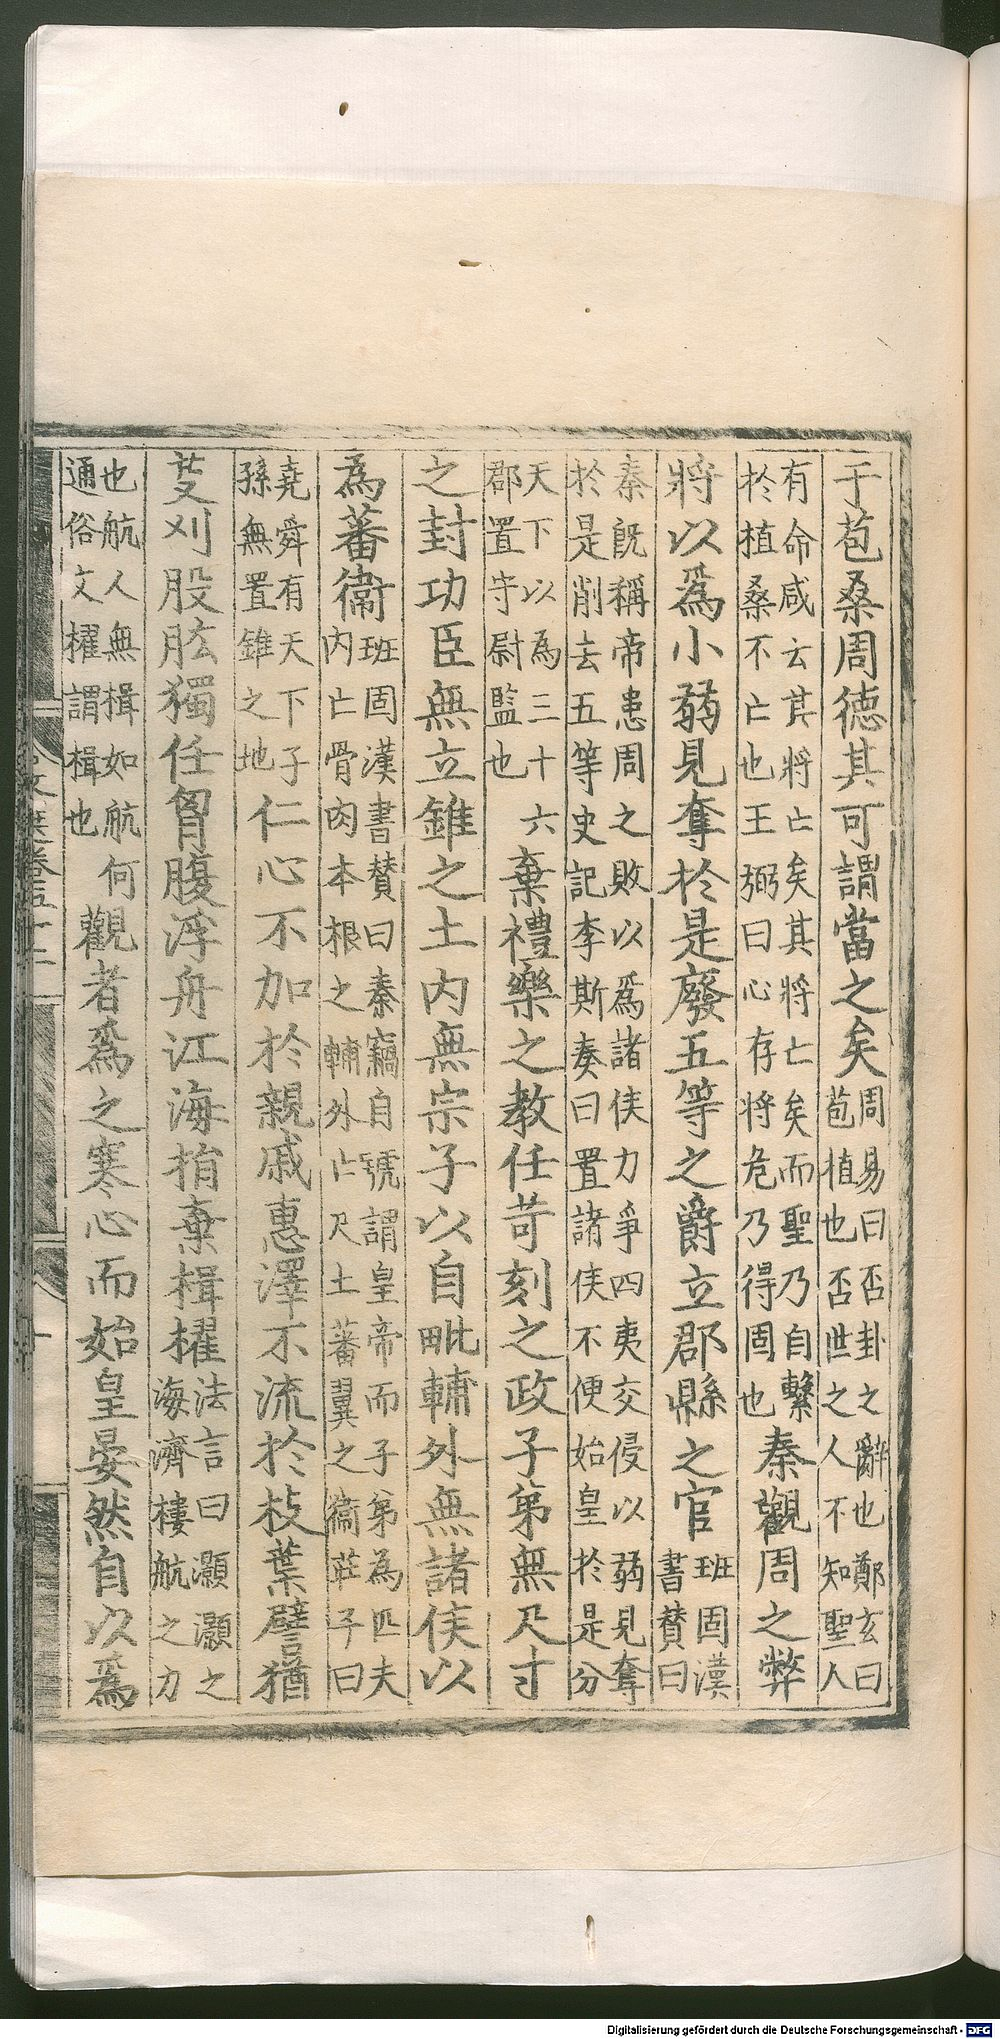 于苞桑周德其可謂當之矣周易曰否卦之辭也鄭玄曰苞植也否世之人不知聖人
有命咸云其將亡矣其將亡矣而聖乃自繫於植桑不亡也王弼曰心存將危乃得固也秦觀周之弊
將以爲小弱見奪於是廢五等之爵立郡縣之官班固漢書賛曰
秦旣稱帝患周之敗以爲諸侯力爭四夷交侵以弱見奪於是削去五等史記李斯奏曰置諸侯不便始皇於是分
天下以為三十六郡置守尉監也棄禮樂之教任苛刻之政子第無尺寸
之封功臣無立錐之土内無宗子以自毗輔外無諸侯以
為蕃衞班固漢書賛曰秦竊自號謂皇帝而子第為匹夫内亡骨肉本根之輔外亡尺土蕃翼之衞莊子曰
堯舜有天下子孫無置錐之地仁心不加於親戚惠澤不流於枝葉譬猶
芟刈股肱獨任胷腹浮舟江海捐棄楫櫂法言曰灝灝之海濟樓航之力
也航人無楫如航何通俗文櫂謂楫也觀者爲之寒心而始皇晏然自以爲
Digitalisierung gefördert durch die Deutsche Forschungsgemeinschaft - DFG